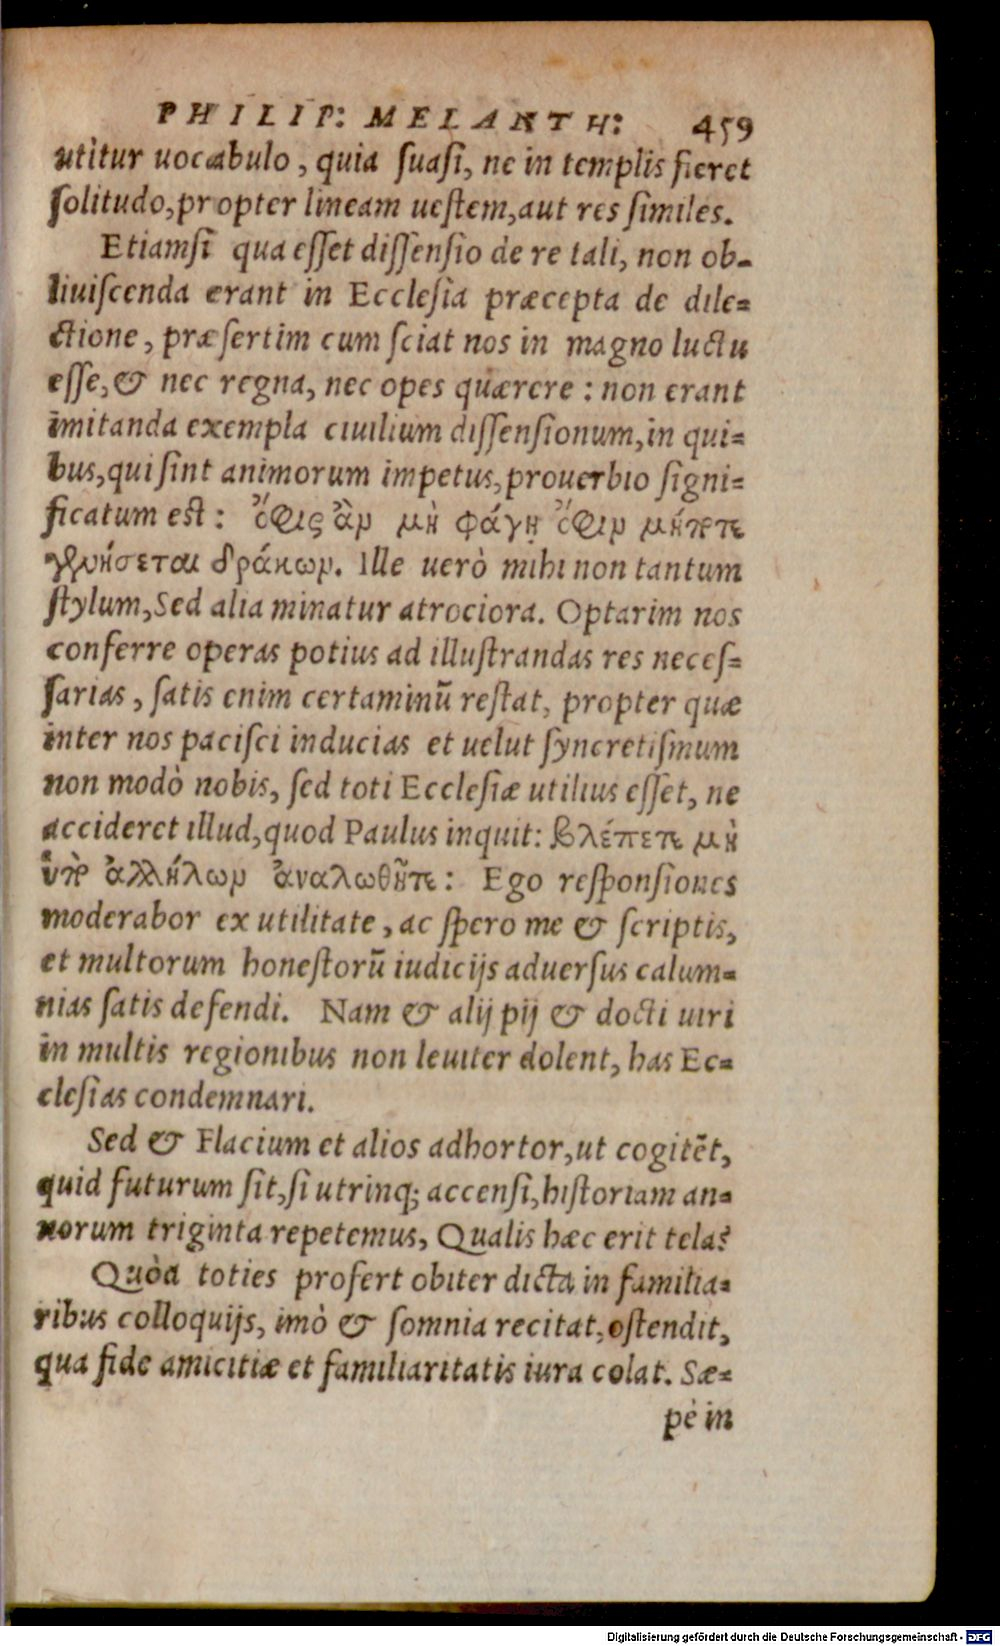 PHILIP: MELANTH: 459
utitur uocabulo, quia ſuaſi, ne in templis fieret
ſolitudo, propter lineam ueſtem, aut res ſimiles.
Etiamſi qua eſſet diſſenſio de re tali, non ob-
liuiſcenda erant in Eccleſia præcepta de dile-
ctione, præſertim cum ſciat nos in magno luctu
eſſe, & nec regna, nec opes quærere: non erant
imitanda exempla ciuilium diſſenſionum, in qui-
bus, qui ſint animorum impetus, prouerbio ſigni-
ficatum est: ὄφις ἂν μὴ φάγῃ ὄφιν μήποτε
γενήσεται δράκων. Ille uerò mihi non tantum
ſtylum, Sed alia minatur atrociora. Optarim nos
conferre operas potius ad illuſtrandas res neceſ-
ſarias, ſatis enim certaminū reſtat, propter quæ
inter nos paciſci inducias et uelut ſyncretiſmum
non modò nobis, ſed toti Eccleſiæ utilius eſſet, ne
accideret illud, quod Paulus inquit: βλέπετε μὴ
ὑπὸ ἀλλήλων ἀναλωθῆτε: Ego reſponſiones
moderabor ex utilitate, ac ſpero me & ſcriptis,
et multorum honeſtorū iudicijs aduerſus calum-
nias ſatis defendi. Nam & alij pij & docti uiri
in multis regionibus non leuiter dolent, has Ec-
cleſias condemnari.
Sed & Flacium et alios adhortor, ut cogitēt,
quid futurum ſit, ſi utrinq; accenſi, hiſtoriam an-
norum triginta repetemus, Qualis hæc erit tela?
Quòd toties profert obiter dicta in familia-
ribus colloquijs, imò & ſomnia recitat, oſtendit,
qua fide amicitiæ et familiaritatis iura colat. Sæ-
pè in
Digitalisierung gefördert durch die Deutsche Forschungsgemeinschaft - DFG